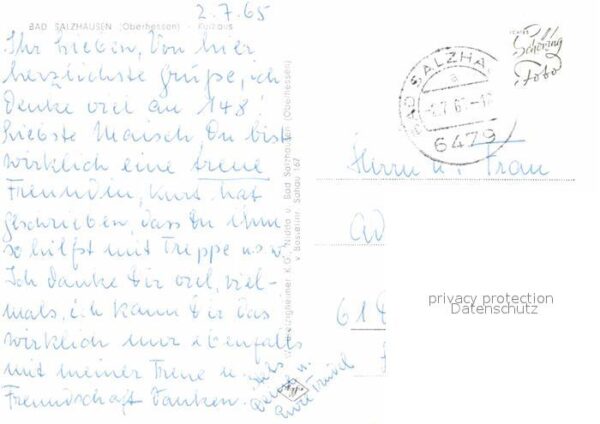 2.7.65
BAD SALZHAUSEN (Oberhessen) - Kurhaus
Ihr Lieben, Von hier
herzlichste Grüße, ich
denke viel an 148!
Liebste Maisch Du bist
wirklich eine treue
Freundin, Kurt hat
geschrieben, dass Du ihm
so hilfst mit Treppe u.s.w.
Ich danke Dir viel, viel-
mals, ich kann Dir das
wirklich nur ebenfalls
mit meiner Treue u.
Freundschaft danken.
K.G., Nidda u. Bad Salzhausen (Oberhessen)
v. Bestellnr. Schau 167
BAD SALZHA
a
-2.7.6
6479
Schöning
Foto
Herrn u. Frau
61
privacy protection
Datenschutz